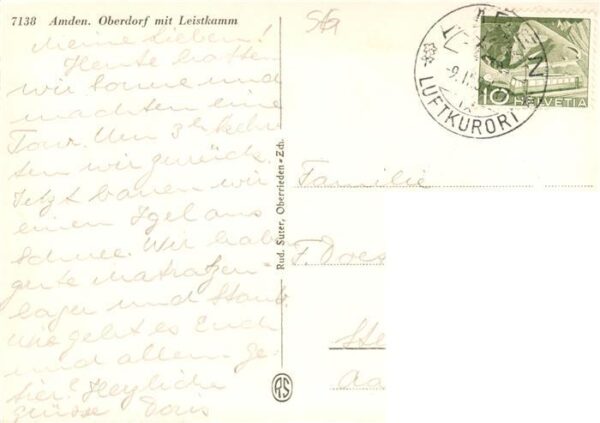 7138 Amden. Oberdorf mit Leistkamm
Meine Lieben!
Heute hatten
wir Sonne und
machten eine
Tour. Um 3h kehr
ten wir zurück.
Jetzt bauen wir
einen Igel aus
Schnee. Wir hab
gute Matratzen
lager und
Wie geht es Euch
und allem Ge
tier? Herzliche
Grüsse Doris
Rud. Suter, Oberrieden-Zch.
RS
AMDEN
LUFTKURORT
10 HELVETIA
Familie
F.